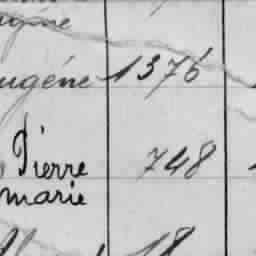 ugéne 1376
Pierre 748
marie
18